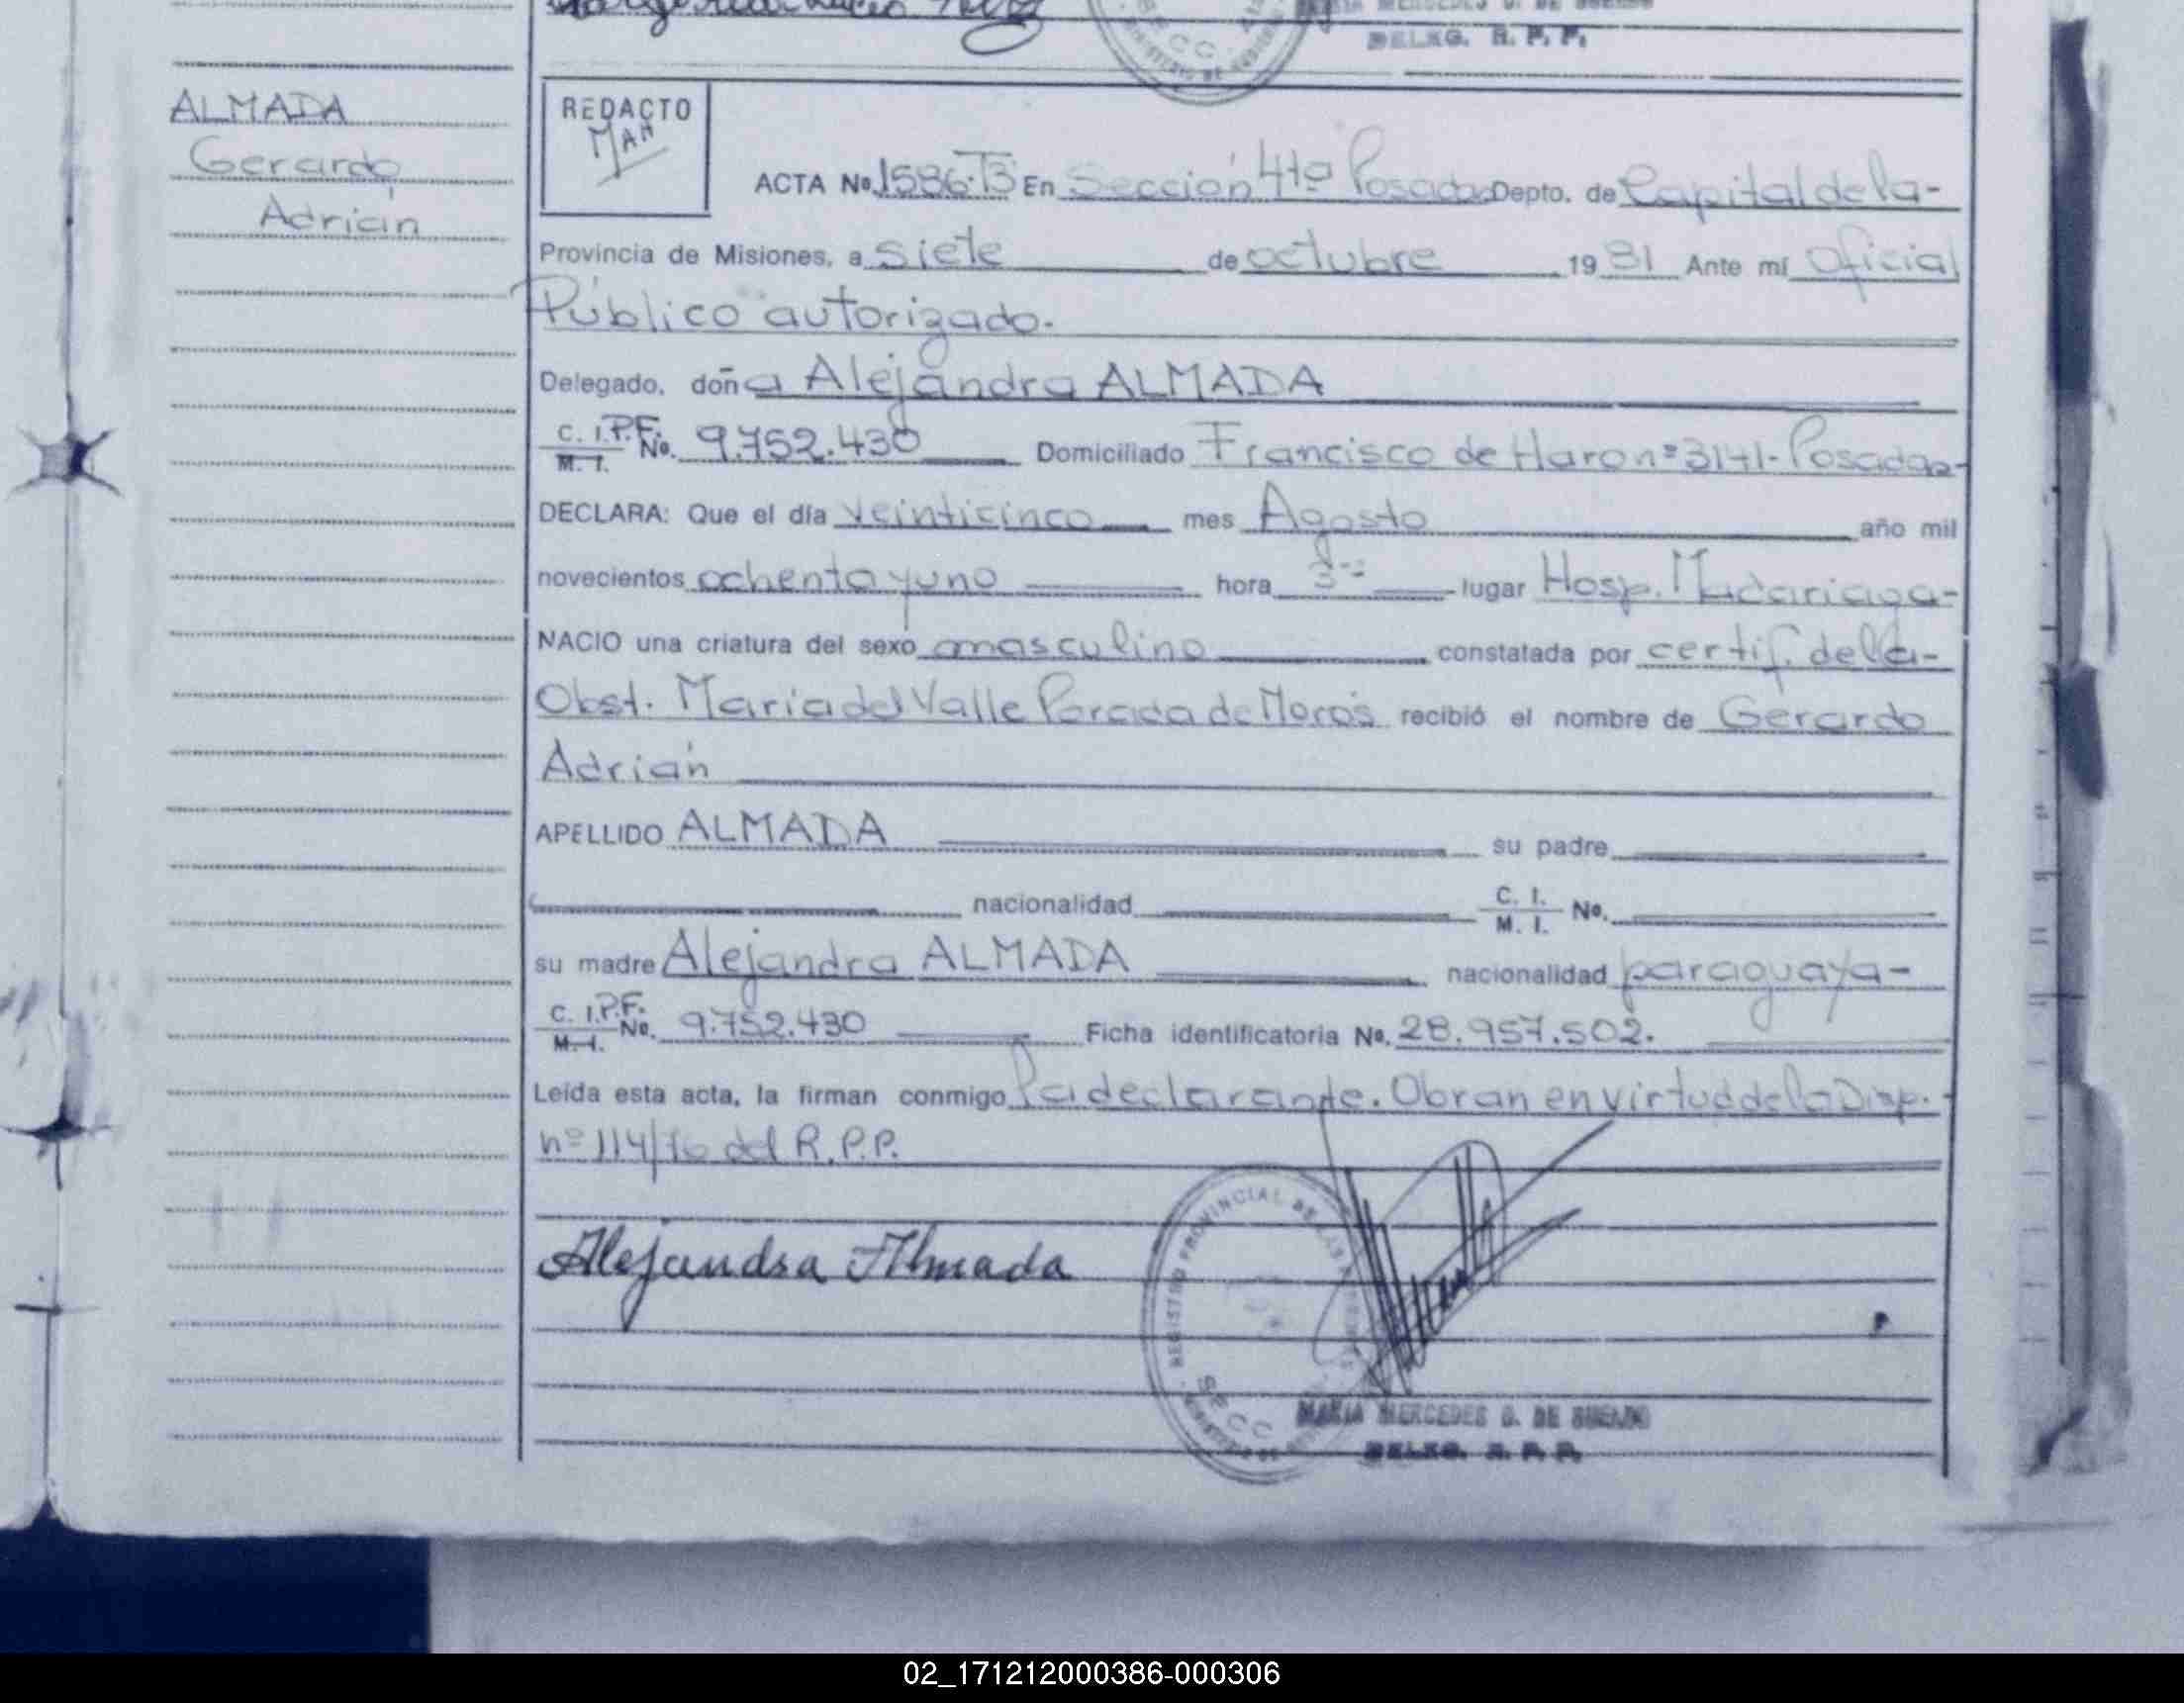 DELEG. R. P. P.
ALMADA
Gerardo
Adrián
REDACTO
MAN
ACTA No. 1586-T3 En Sección 4ta Posadas Depto. de Capital de la-
Provincia de Misiones, a siete de octubre 1981 Ante mí Oficial
Público autorizado.
Delegado, doña Alejandra ALMADA
C. I.P.F. M. I. No. 9.752.430 Domiciliado Francisco de Haro nº 3141-Posadas-
DECLARA: Que el día veinticinco mes Agosto año mil
novecientos ochenta y uno hora 3 lugar Hosp. Madariaga-
NACIO una criatura del sexo masculino constatada por certif. de la-
Obst. María del Valle de recibió el nombre de Gerardo
Adrián
APELLIDO ALMADA su padre
nacionalidad C. I. M. I. No.
su madre Alejandra ALMADA nacionalidad paraguaya-
C. I.P.F. M. I. No. 9.752.430 Ficha identificatoria No. 28.957.502.
Leída esta acta, la firman conmigo la declarante. Obran en virtud de la Disp.
nº 114/76 del R.P.P.
REGISTRO PROVINCIAL DE LAS PERSONAS
SECC
Alejandra Almada
MARIA MERCEDES G. DE
DELEG. R. P. P.
02_171212000386-000306